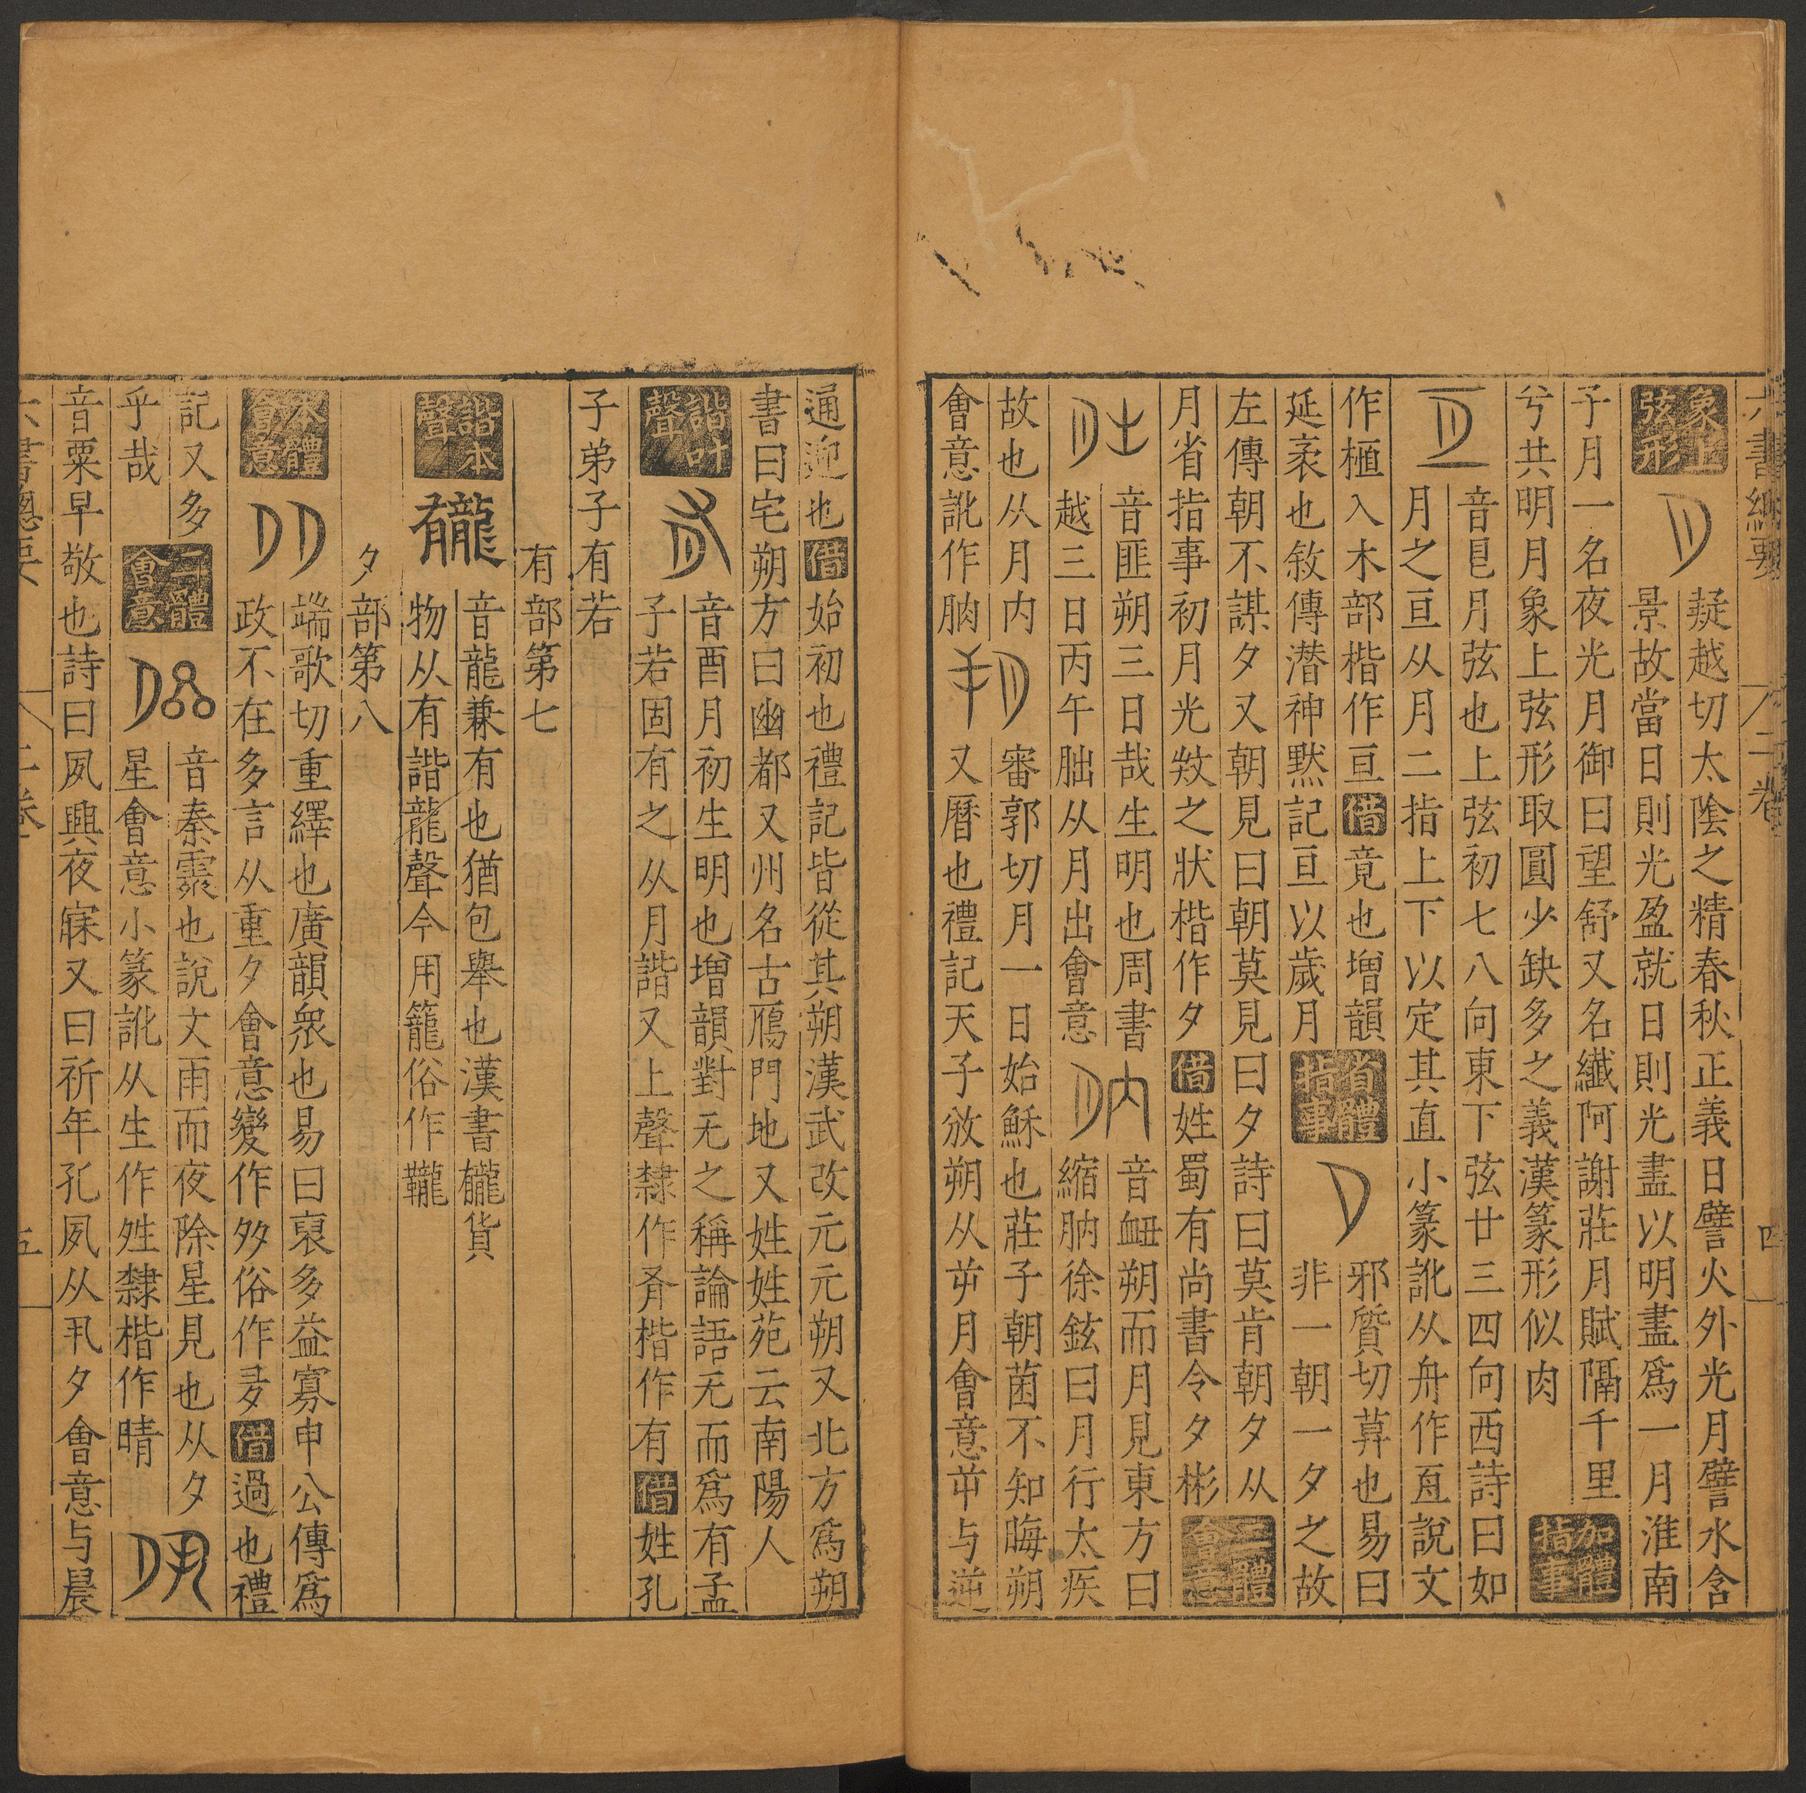 六書總要 二卷 四
象上弦形
疑越切太陰之精春秋正義日譬火外光月譬水含
景故當日則光盈就日則光盡以明盡爲一月淮南
子月一名夜光月御曰望舒又名纖阿謝莊月賦隔千里
兮共明月象上弦形取圓少缺多之義漢篆形似肉
加體指事
音月弦也上弦初七八向東下弦廿三四向西詩曰如
月之亘从月二指上下以定其直小篆訛从舟作說文
作入木部楷作亘借竟也增韻
延袤也敘傳潜神黙記亘以歲月
省體指事
夕
邪質切莫也易曰
非一朝一夕之故
左傳朝不謀夕又朝見曰朝莫見曰夕詩曰莫肯朝夕从
月省指事初月光殺之狀楷作夕借姓蜀有尚書令夕彬
二體會意
朏
音匪朔三日哉生明也周書
越三日丙午朏从月出會意
音衄朔而月見東方曰
縮朒徐鉉曰月行太疾
故也从月内
會意訛作朒
朔
審郭切月一日始穌也莊子朝菌不知晦朔
又曆也禮記天子放朔从屰月會意屰与逆
通逆也借始初也禮記皆從其朔漢武改元元朔又北方爲朔
書曰宅朔方曰幽都又州名古鴈門地又姓姓苑云南陽人
諧叶聲
音酉月初生明也增韻對无之稱論語无而爲有孟
子若固有之从月諧又上聲隸作楷作有借姓孔
子弟子有若
有部第七
諧本聲
龓
音龍兼有也猶包舉也漢書龓貨
物从有諧龍聲今用籠俗作
夕部第八
本體會意
多
端歌切重繹也廣韻衆也易曰裒多益寡申公傳爲
政不在多言从重夕會意變作夛俗作借過也禮
記又多
乎哉
二體會意
音秦霡也說文雨而夜除星見也从夕
星會意小篆訛从生作姓隸楷作晴
音粟早敬也詩曰夙興夜寐又曰祈年孔夙从丮夕會意与晨
六書總要 二卷 五